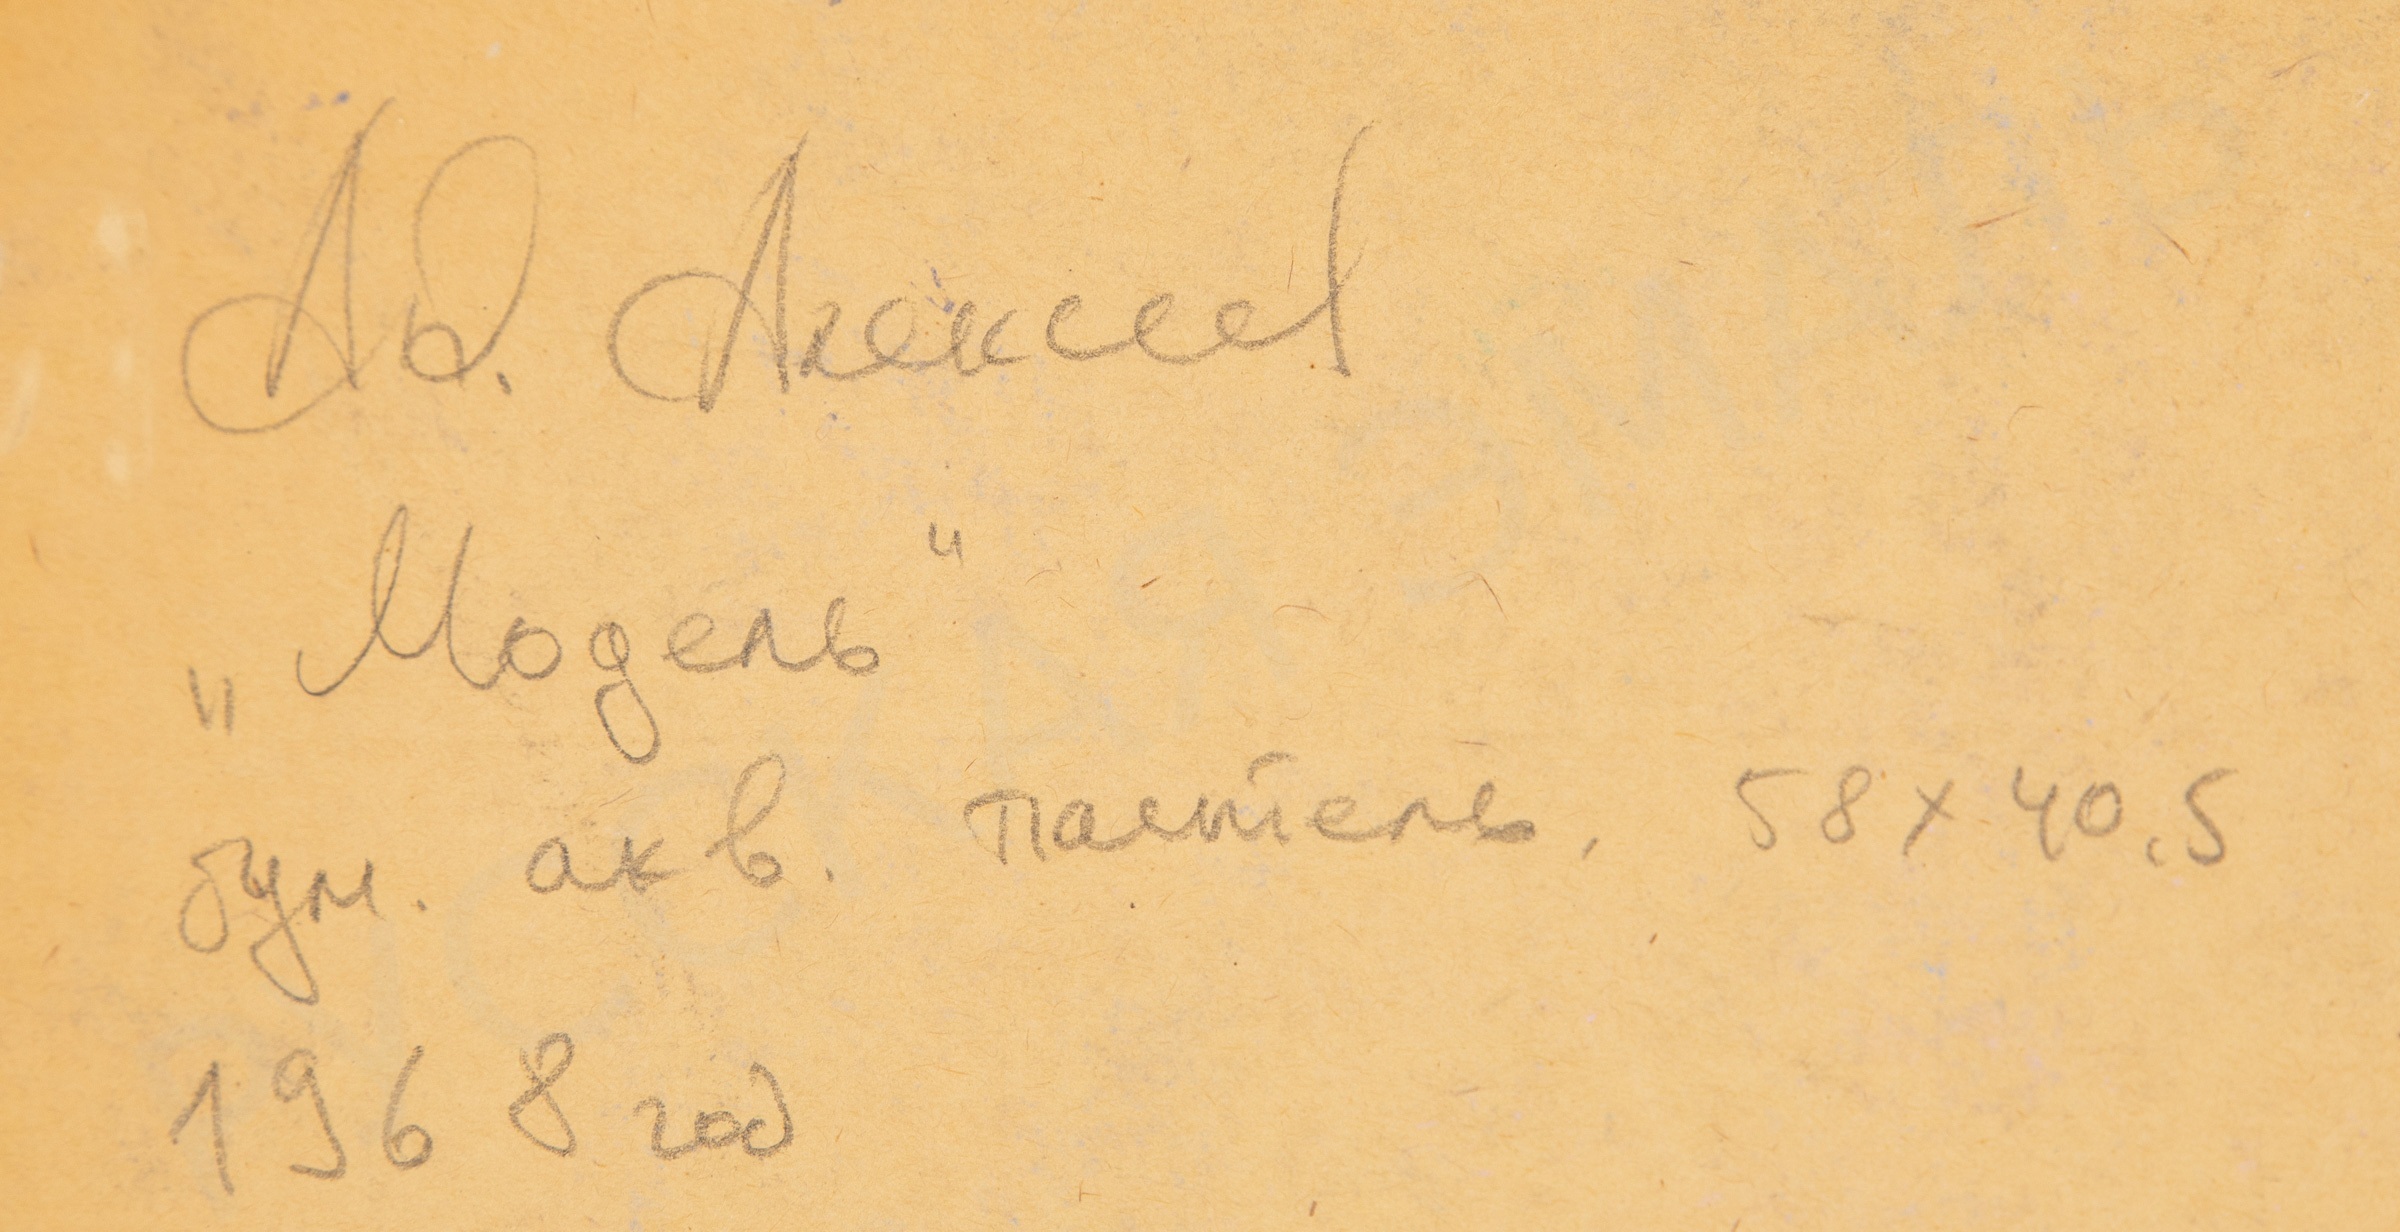 Ад. Алексеев
„Модель“
бум. акв. пастель, 58×40.5
1968 год